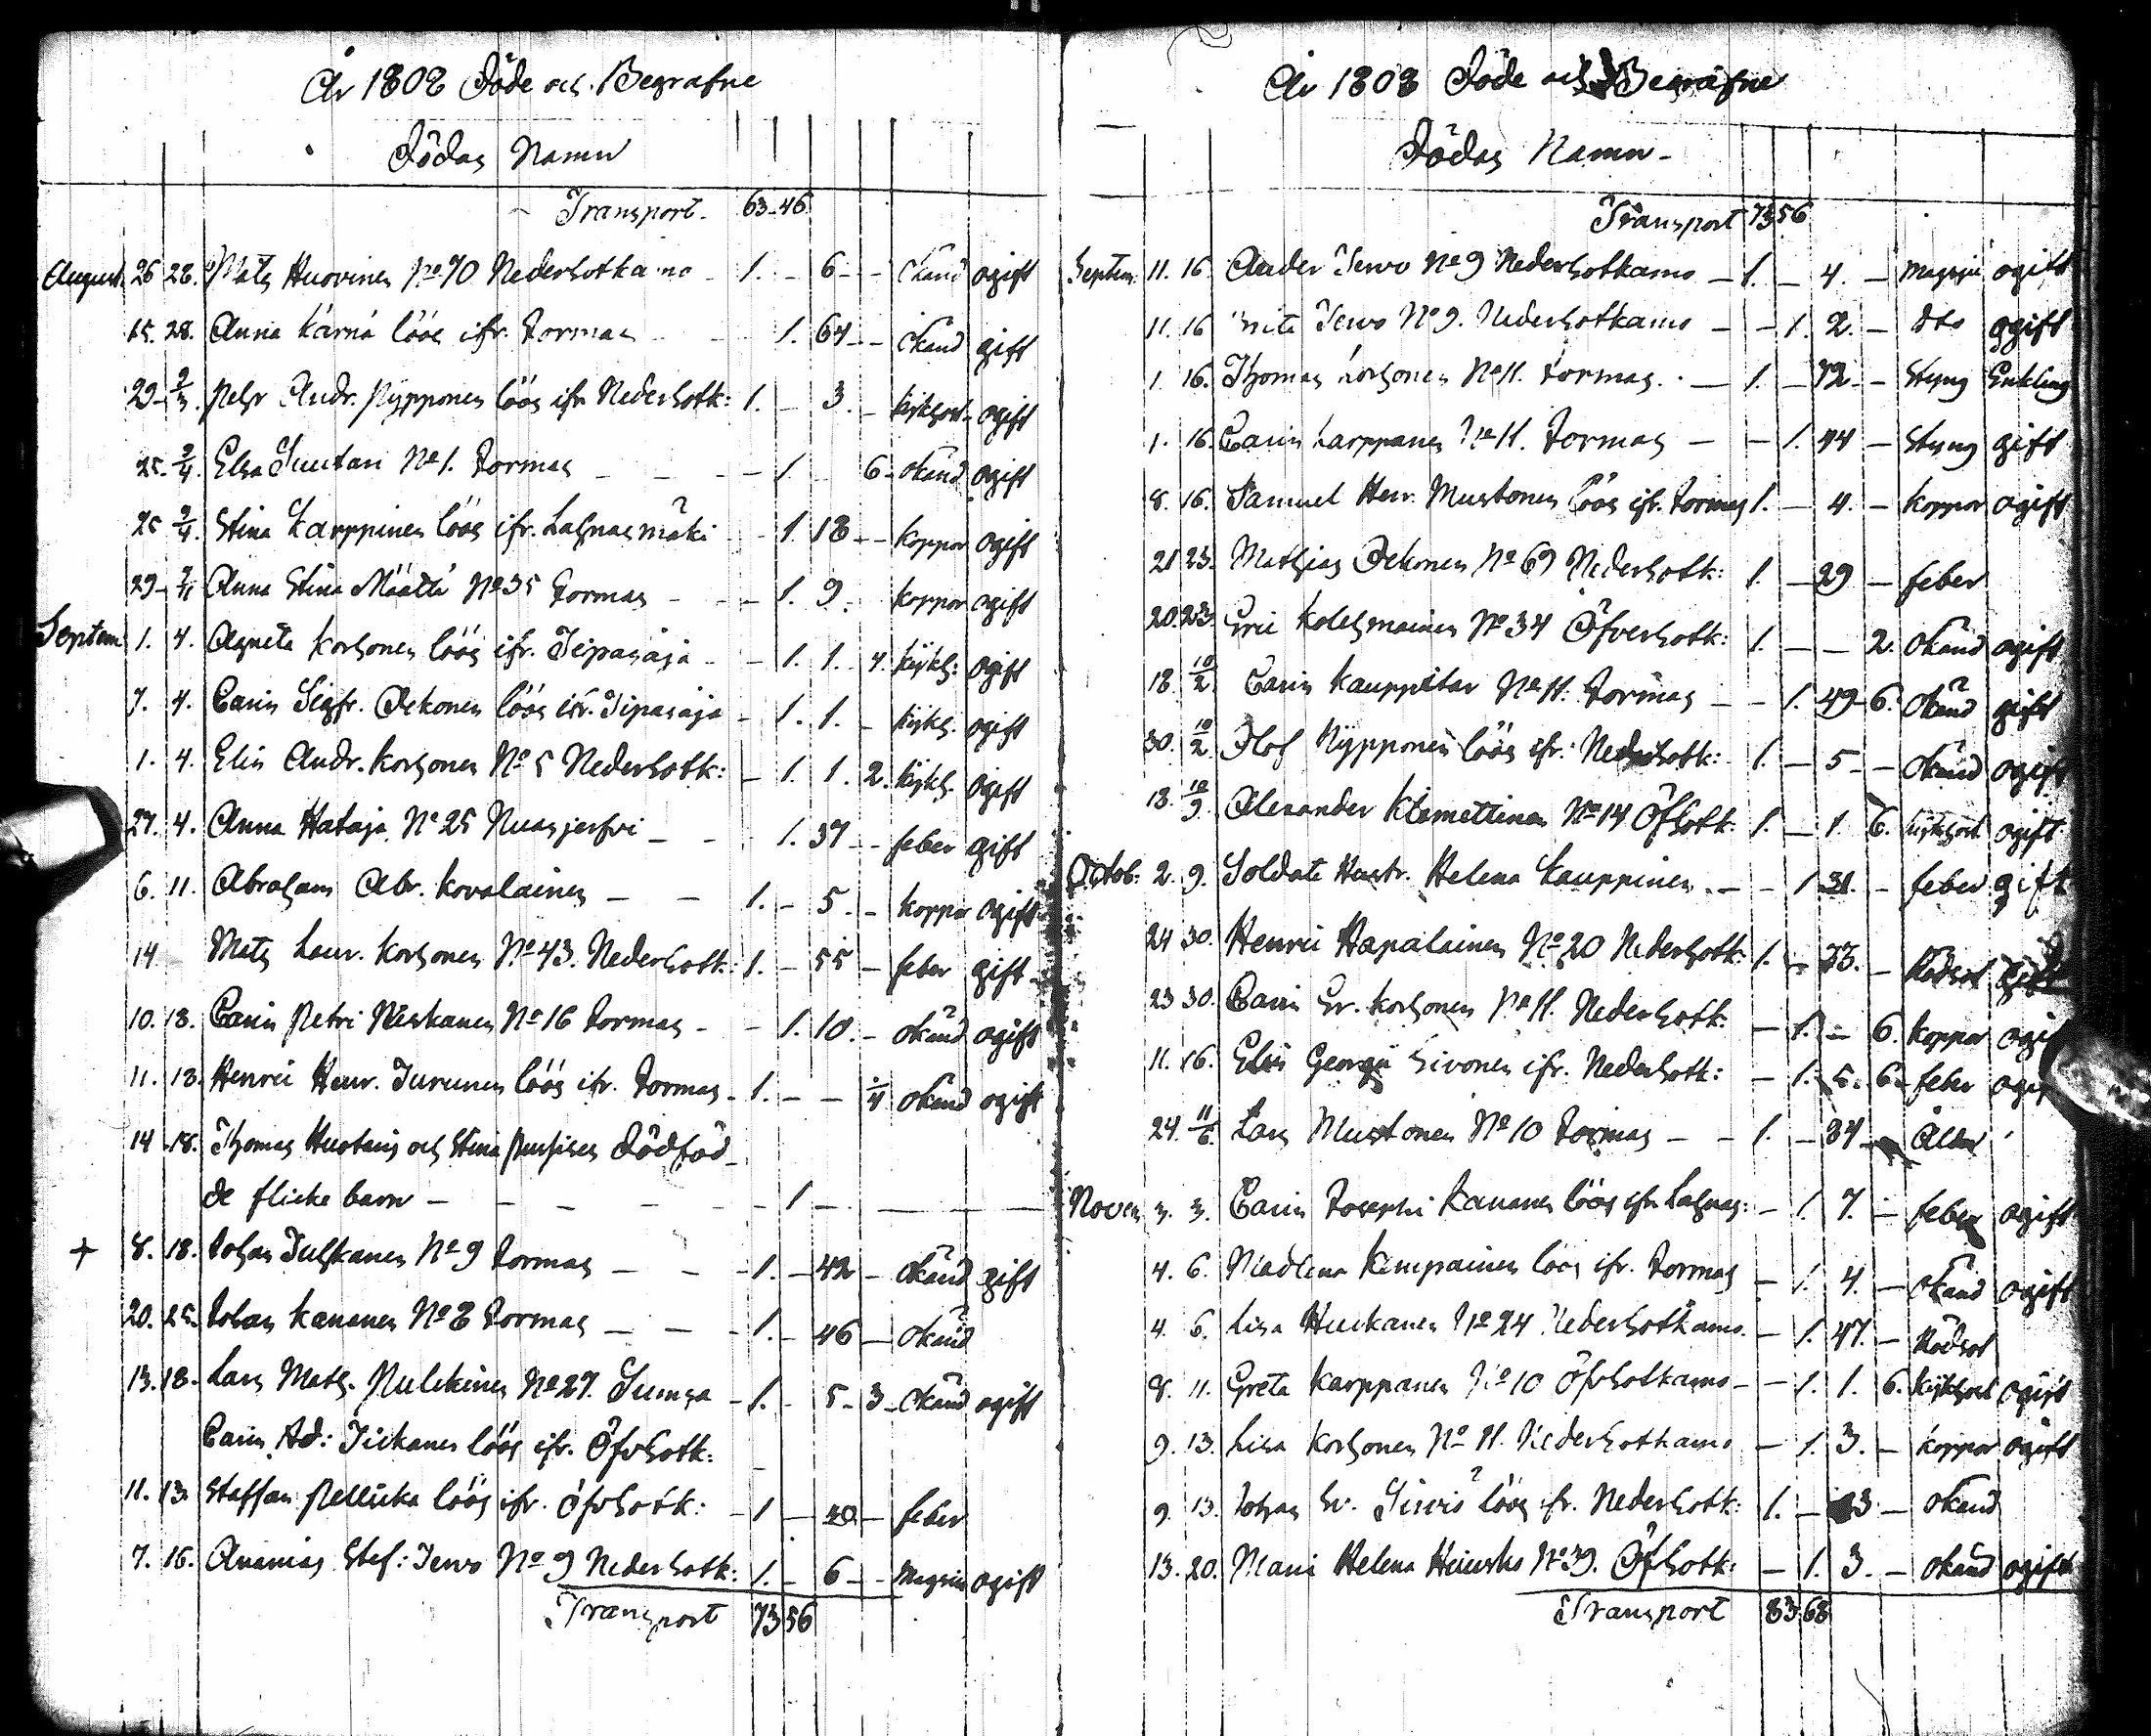 År 1808 Döde och Begrafne
Dödas Namn
Transport. 63-46
August. 26 28. Mats Huovinen No 70 Nedersotkamo - 1. - 6 - - okänd ogift
15. 28. Anna Kärnä löös ifr. Sormas - 1. 64 - - okänd gift
29 - 9/3. Pehr Andr. Nypponen löös ifr Nedersotk: 1. - 3. - kijkhost. ogift
25. 9/4. Elsa Juntan No 1. Sormas - - - - 1. 6 - okänd ogift
25 9/4. Stina Karppinen löös ifr. Lahnasmäki - 1. 18 - - koppor ogift
29 - 9/4 Anna Stina Määttä No 35 Sormas - - - 1. 9. koppor ogift
Septem 1. 4. Agneta Korhonen löös ifr. Tipasaja - - 1. 1. 4. kijkh: ogift
7. 4. Carin Sigfr. Oekonen löös ifr. Tipasaja - 1. 1. - kijkh. ogift
1. 4. Elin Andr. Korhonen No 5 Nedersotk: - 1. 1. 2. kijkh. ogift
27. 4. Anna Hataja No 25 Nuasjerfvi - - 1. 37 - - feber gift
6. 11. Abraham Abr. Kovalainen - - 1. - 5. - koppor ogift
14 Mats Laur. Korhonen No 43. Nedersotk: 1. - 55 - feber gift
10. 18. Carin Petri Niskanen No 16 Sormas - - 1. 10. - okänd ogift
11. 18. Henric Henr. Turunen löös ifr. Sormas - 1. - - 1/4 okänd ogift
14 - 18. Thomas Huotaris och Stina dödföd-
de flicke barn - - - - - - 1 -
+ 8. 18. Johan Tulkanen No 9 Sormas - - - 1. - 42 - okänd gift
20. 25. Johan Kananen No 8 Sormas - - - 1. - 46 - okänd
13. 18. Lars Math. Pulckinen No 27. Sumsa - 1. - 5 - 3 - okänd ogift
Carin Ad: Tickanen löös ifr. Öfvsotk:
11. 13. Staffan Pellicka löös ifr. Öfvsotk: - 1 - 40. - feber
7. 16. Ananias Stef: Tervo No 9 Nedersotk: 1. - 6 - - Magsiu ogift
Transport 73 56
År 1808 Döde och Begrafne
Dödas Namn -
Transport 73 56
Septem. 11. 16. Ander Tervo No 9 Nedersotkamo - 1. - 4. - magsju ogift
11. 16 Brita Tervo No 9. Nedersotkamo - - 1. 2. - dto ogift
1. 16. Thomas Korhonen No 11. Sormas. - 1. - 72. - Styng Enkling
1. 16. Carin Karppanen No 11. Sormas - - 1. 44 - Styng gift
8. 16. Samuel Henr. Mustonen löös ifr. Sormas 1. - 4. - koppor ogift
21 23. Mathias Oekonen No 69 Nedersotk: 1. - 29 - feber
20. 23. Eric Kolehmainen No 34 Öfversotk: 1. - - 2. okänd ogift
18. 10/2. Carin Kauppitar No 11. Sormas - - 1. 49 - 6. okänd gift
30. 10/2. Olof Nypponen löös ifr: Nedersotk: 1. - 5 - - okänd ogift
18. 10/9. Alexander Klemettinen No 14 Öfsotk. 1. - 1. 6. kijkhost ogift
Octob: 2. 9. Soldats Hustr. Helena Kauppinen - - 1. 31. - feber gift
24 30. Henric Hapalainen No 20 Nedersotk: 1. - 33. - Rödsot gift
23 30. Carin Er. Korhonen No 11. Nedersotk. - 1. - 6. koppor ogif
11. 16. Elin Georgii Sivonen ifr. Nedersotk: - 1. 5. 6. feber ogif
24. 11/6. Lars Mustonen No 10 Sormas - - 1. - 84 Ålder
Novem 3. 3. Carin Josephi Kananen löös ifr Lahnas: - 1. 7. - feber ogift
4. 6. Madlena Kemppainen löös ifr. Sormas - 1. 4. - okänd ogift
4. 6. Lisa Huckanen No 24 Nedersotkamo. - 1. 47. - Rödsot
8. 11. Greta Karppanen No 10 Öfvsotkamo - - 1. 1. 6. kijkhost ogift
9. 13. Lisa Korhonen No 11. Nedersotkamo - 1. 3. - koppor ogift
9. 13. Johan Er. löös ifr. Nedersotk: 1. - 3 - okänd
13. 20. Maria Helena No 39. Öfsotk: - 1. 3. - okänd ogift
Transport 83 68